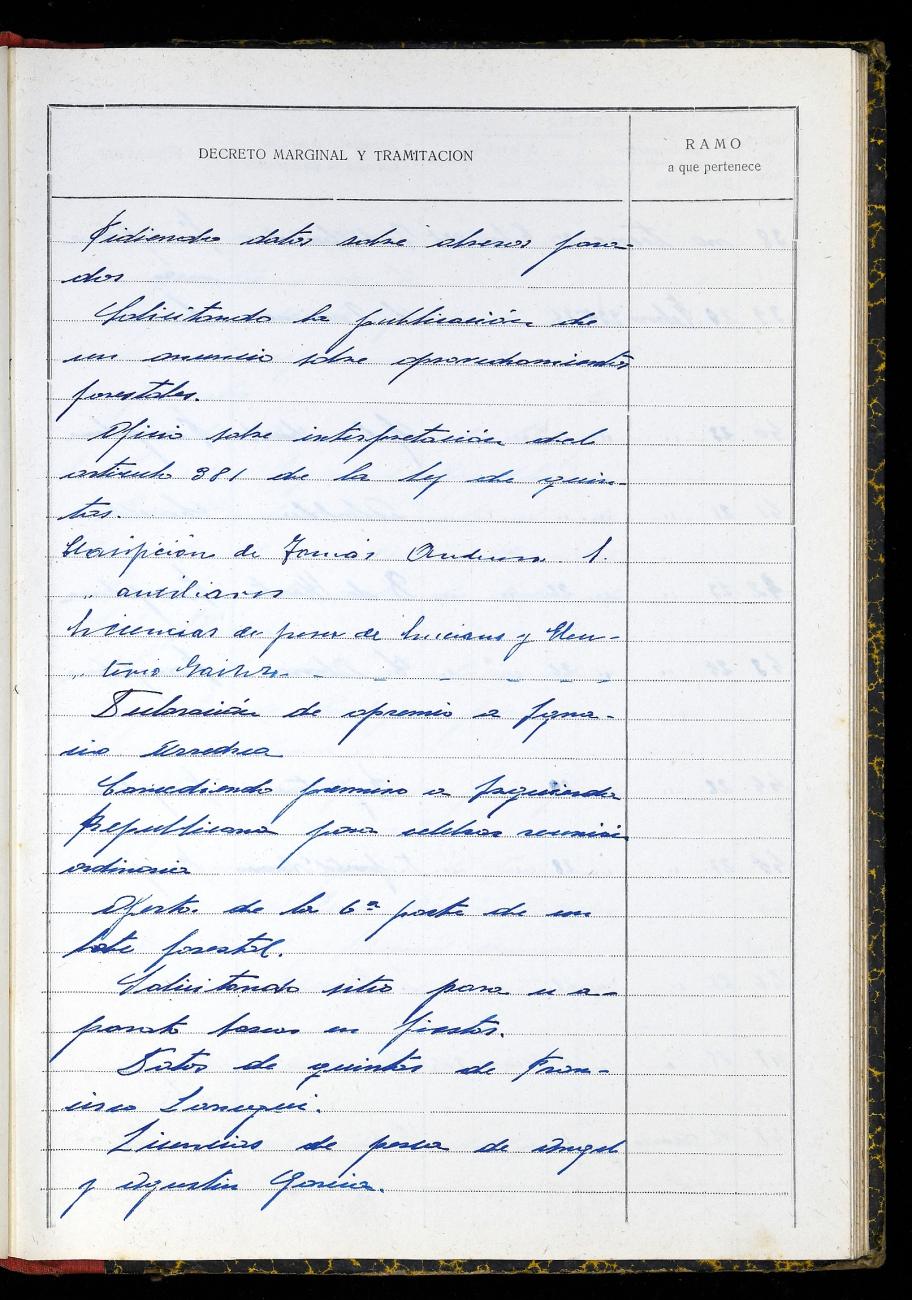 DECRETO MARGINAL Y TRAMITACION
RAMO
a que pertenece
Pidiendo datos sobre obreros para-
dos
Solicitando la publicación de
un anuncio sobre aprovechamientos
forestales.
Oficio sobre interpretación del
articulo 381 de la ley de quin-
tas.
Clasificición de Tomás S.
„ auxiliares
Licencias de pesca de Luciano y Eleu-
„ terio
Declaración de apremio a Igna-
cio
Concediendo permiso a Izquierda
Republicana para celebrar reunión
ordinaria
Oferta de la 6ª parte de un
lote forestal.
Solicitando sitio para u a-
parato barcas en fiestas.
Datos de quintas de Fran-
cisco Larregui.
Licencias de pesca de Angel
y Agustin Garcia.